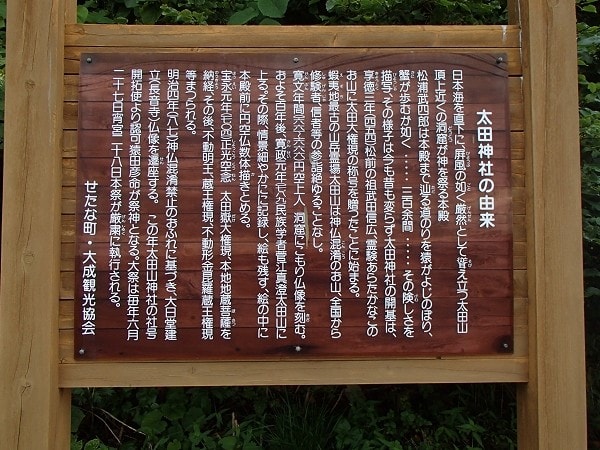 太田神社の由来
日本海を直下に、屏風の如く厳然として聳え立つ太田山
頂上近くの洞窟が神を祭る本殿
松浦武四郎は本殿まで辿る道のりを猿がよじのぼり、
蟹が歩むが如く・・・・三百余間・・・・その険しさを
描写、その様子は今も昔も変らず太田神社の開基は、
享徳三年(一四五四)松前の祖武田信広、霊験あらたかなこの
お山に太田大権現の称号を贈ったことに始まる。
蝦夷地最古の山岳霊場太田山は神仏混淆のお山、全国から
修験者、信者等の参詣絶ゆることなし。
寛文年間(一六六一〜一六六六)円空上人、洞窟にこもり仏像を刻む。
およそ百年後、寛政元年(一七八九)民族学者菅江真澄太田山に
上る。その際、情景細やかに記録し、絵も残す、絵の中に
本殿前に円空仏数体描きとめる。
宝永元年(一七〇四)正光空念、太田嶽大権現、本地地蔵菩薩を
納経、その後、不動明王、蔵王権現、不動形金毘羅蔵王権現
等まつられる。
明治四年(一八七一)神仏混淆禁止のおふれに基づき、大日堂建
立(長音寺)仏像を遷座する。この年太田山神社の社号
開拓使より認可猿田彦命が祭神となる。大祭は毎年六月
二十七日宵宮、二十八日本祭が厳粛に執行される。
せたな町・大成観光協会